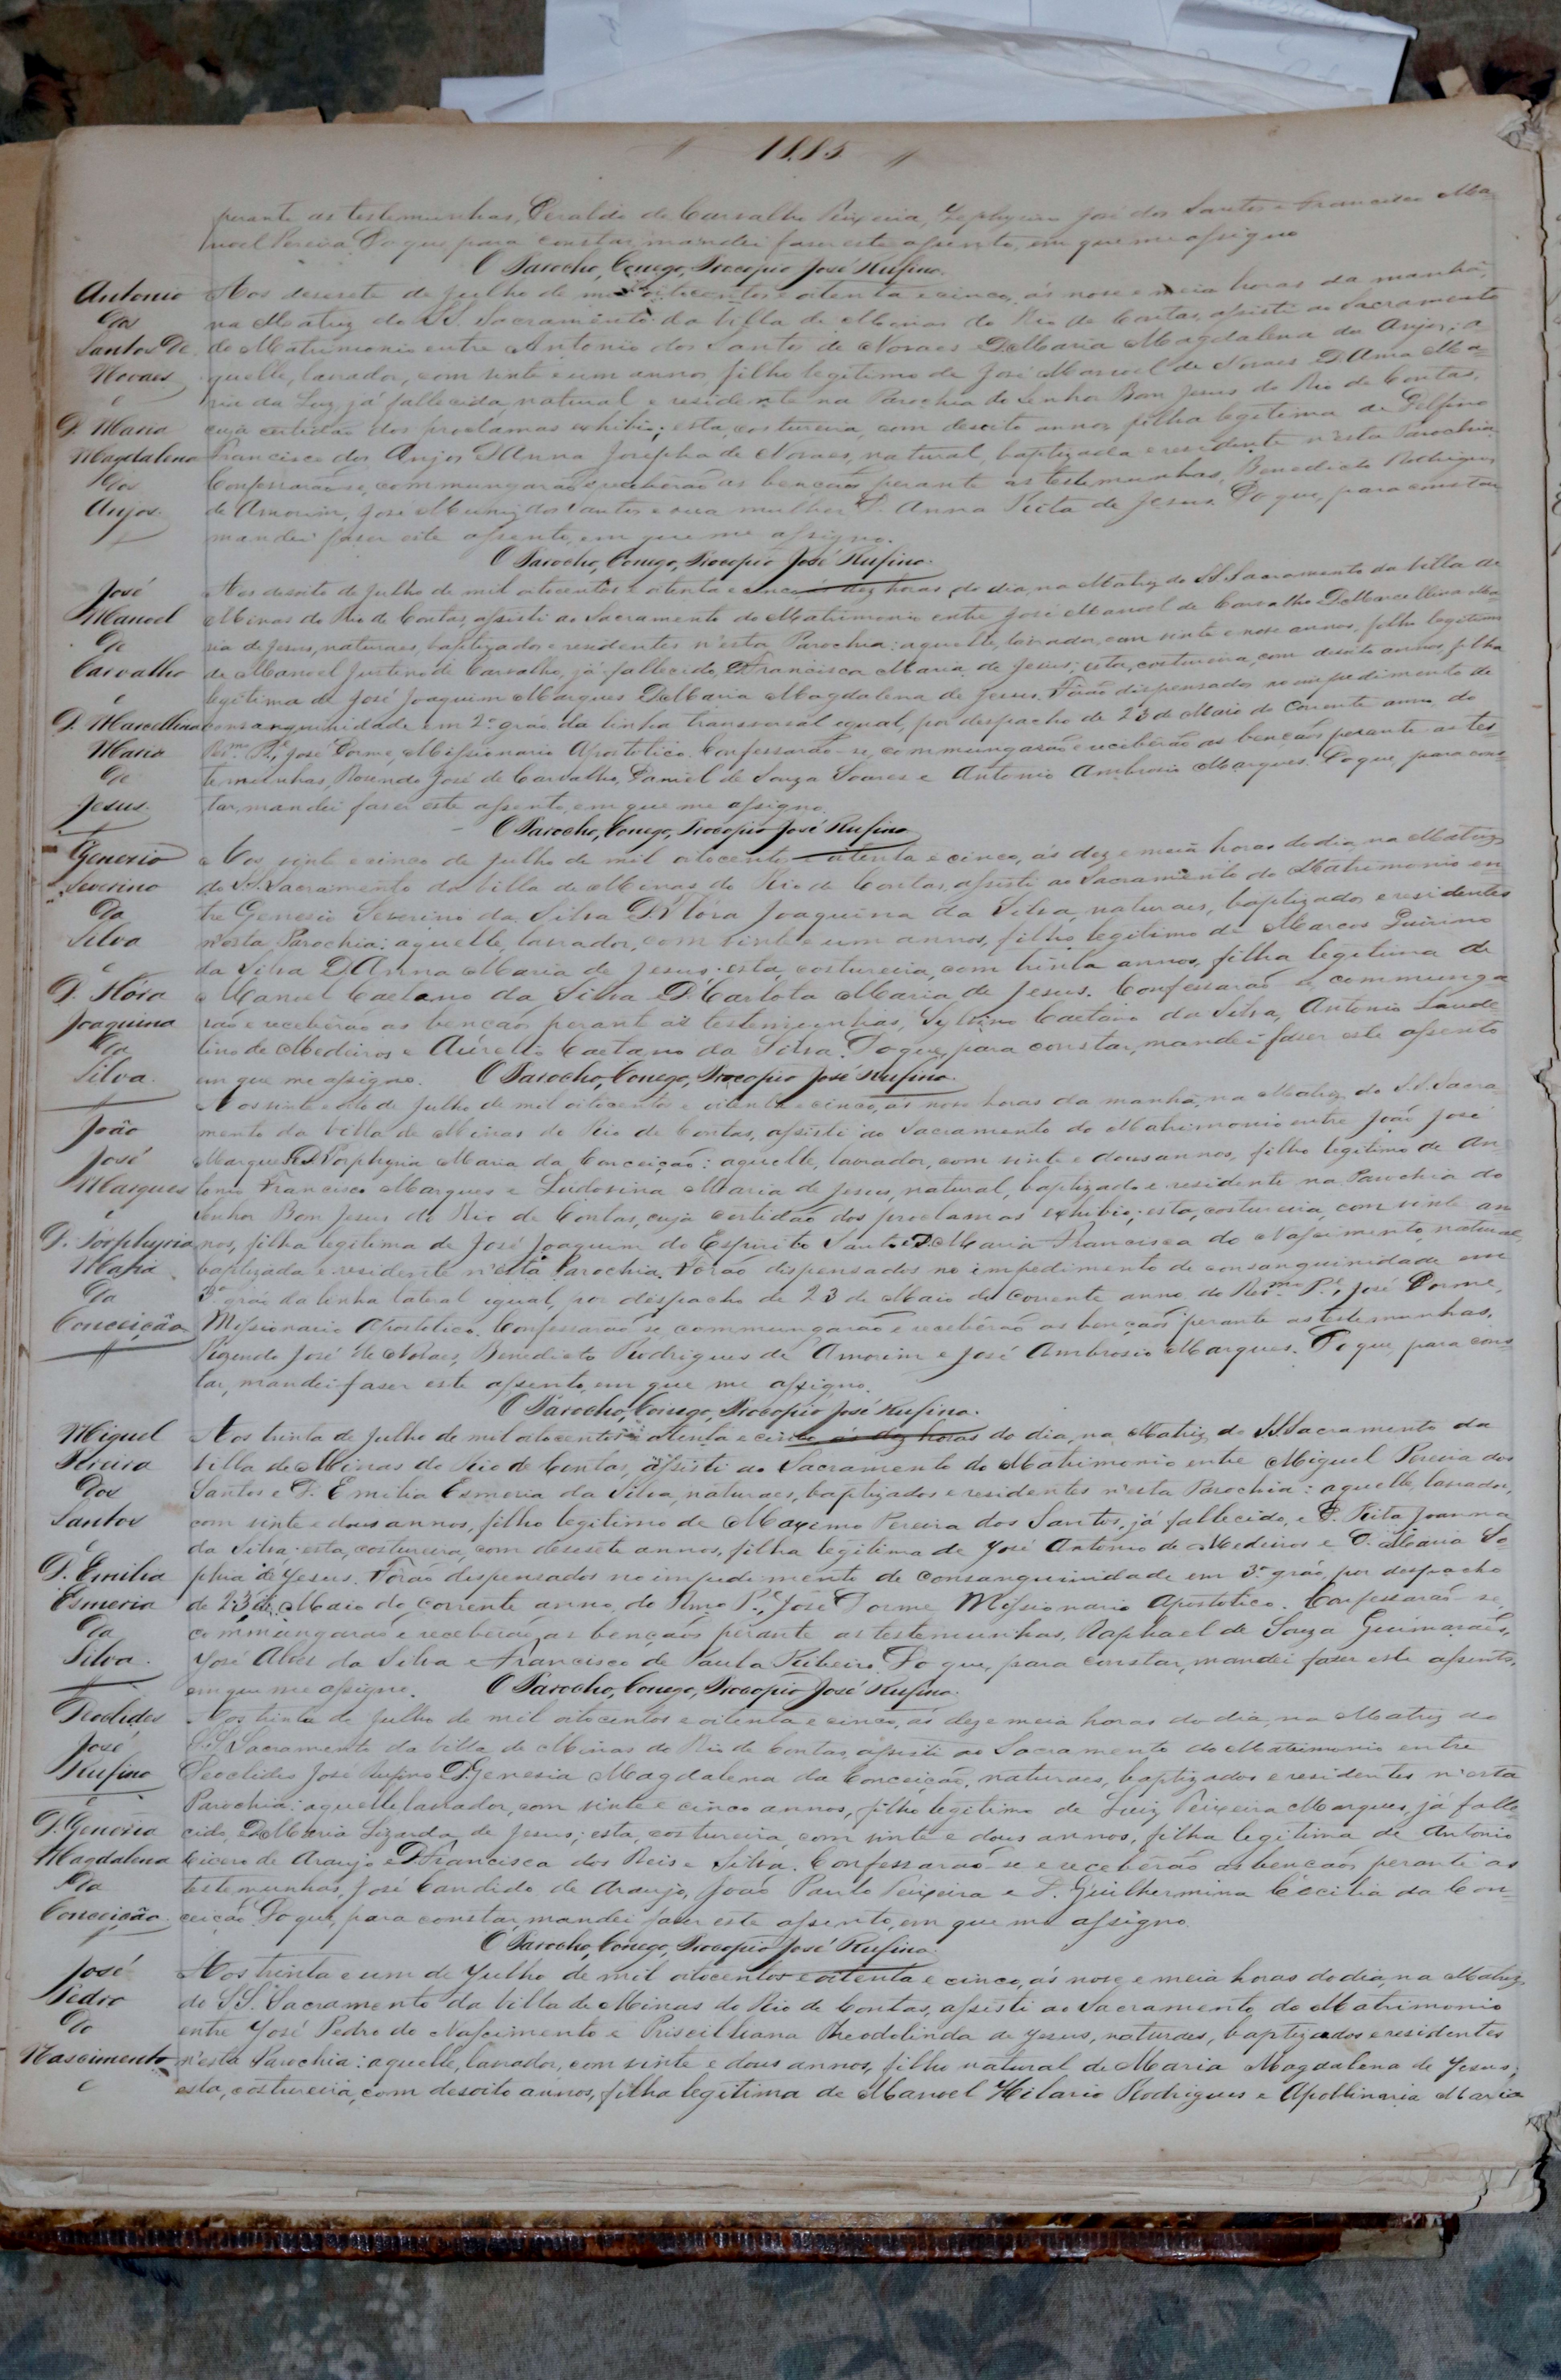 1885
perante as testemunhas, Geraldo de Carvalho Teixeira, Zephyrino José dos Santos e Francisco Ma-
noel Pereira. Do que, para constar, mandei faser este assento, em que me assigno
O Parocho, Conego, Procopio José Rufino.
Antonio dos Santos De Novaes e D. Maria Magdalena dos Anjos.
Aos desesete de Julho de mil oitocentos e oitenta e cinco, ás nove e meia horas da manhã,
na Matriz do SS. Sacramento da Villa de Minas do Rio de Contas, assisti ao Sacramento
do Matrimonio entre Antonio dos Santos de Novaes e D. Maria Magdalena dos Anjos; a-
quelle, lavrador, com vinte e um annos, filho legitimo de José Manoel de Novaes e D. Anna Ma-
ria da Luz, já fallecida, natural e residente na Parochia do Senhor Bom Jesus do Rio de Contas,
cuja certidão dos proclamas exhibio; esta, costureira, com desoito annos, filha legitima de Delfino
Francisco dos Anjos e D. Anna Josepha de Novaes, natural, baptizada e residente n'esta Parochia.
Confessarão-se, commungarão e receberão as bençãos perante as testemunhas, Benedicto Rodrigues
de Amorim, José Muniz dos Santos e sua mulher D. Anna Rita de Jesus. Do que, para constar
mandei faser este assento, em que me assigno.
O Parocho, Conego, Procopio José Rufino.
José Manoel de Carvalho e D. Marcellina Maria de Jesus.
Aos desoito de Julho de mil oitocentos e oitenta e cinco ás dez horas do dia, na Matriz do SS. Sacramento da Villa de
Minas do Rio de Contas, assisti ao Sacramento do Matrimonio entre José Manoel de Carvalho e D. Marcellina Ma-
ria de Jesus, naturaes, baptizados e residentes n'esta Parochia: aquelle, lavrador, com vinte e nove annos, filho legitimo
de Manoel Justino de Carvalho, já fallecido, e D. Francisca Maria de Jesus; esta, costureira, com desoito annos, filha
legitima de José Joaquim Marques e D. Maria Magdalena de Jesus. Forão dispensados no impedimento de
consanguinidade em 2º gráo da linha transversal egual, por despacho de 23 de Maio do corrente anno do
Rmo. Pe. José Dorme, Missionario Apostolico. Confessarão-se, commungarão e receberão as bençãos perante as tes-
temunhas, Rosendo José de Carvalho, Daniel de Souza Soares e Antonio Ambrosio Marques. Do que, para cons-
tar, mandei faser este assento, em que me assigno.
O Parocho, Conego, Procopio José Rufino
Genesio Severino da Silva e D. Flóra Joaquina da Silva.
Aos vinte e cinco de Julho de mil oitocentos e oitenta e cinco, ás dez e meia horas do dia, na Matriz
do SS. Sacramento da Villa de Minas do Rio de Contas, assisti ao Sacramento do Matrimonio en-
tre Genesio Severino da Silva e D. Flóra Joaquina da Silva, naturaes, baptizados e residentes
n'esta Parochia: aquelle, lavrador, com vinte e um annos, filho legitimo de Marcos Quirino
da Silva e D. Anna Maria de Jesus; esta, costureira, com trinta annos, filha legitima de
Manoel Caetano da Silva e D. Carlota Maria de Jesus. Confessarão-se, communga-
rão e receberão as bençãos perante as testemunhas, Sylvino Caetano da Silva, Antonio Laude-
lino de Medeiros e Aurelio Caetano da Silva. Do que, para constar, mandei faser este assento
em que me assigno. O Parocho, Conego, Procopio José Rufino.
João José Marques e D. Porphyria Maria da Conceição
Aos vinte e oito de Julho de mil oitocentos e oitenta e cinco, ás nove horas da manhã, na Matriz do SS. Sacra-
mento da Villa de Minas do Rio de Contas, assisti ao Sacramento do Matrimonio entre João José
Marques e D. Porphyria Maria da Conceição: aquelle, lavrador, com vinte e dous annos, filho legitimo de An-
tonio Francisco Marques e Ludovina Maria de Jesus, natural, baptizado e residente na Parochia do
Senhor Bom Jesus do Rio de Contas, cuja certidão dos proclamas exhibio; esta, costureira, com vinte an-
nos, filha legitima de José Joaquim do Espirito Santo e D. Maria Francisca do Nascimento, natural,
baptizada e residente n'esta Parochia. Forão dispensados no impedimento de consanguinidade em
3º gráo da linha lateral egual, por despacho de 23 de Maio do corrente anno do Rmo. Pe., José Dorme,
Missionario Apostolico. Confessarão-se, commungarão e receberão as bençãos perante as testemunhas,
Rozendo José de Novaes, Benedicto Rodrigues de Amorim e José Ambrosio Marques. Do que, para cons-
tar, mandei faser este assento, em que me assigno.
O Parocho, Conego, Procopio José Rufino.
Miguel Pereira dos Santos e D. Emilia Esmeria da Silva.
Aos trinta de Julho de mil oitocentos e oitenta e cinco ás dez horas do dia, na Matriz do SS. Sacramento da
Villa de Minas do Rio de Contas, assisti ao Sacramento do Matrimonio entre Miguel Pereira dos
Santos e D. Emilia Esmeria da Silva, naturaes, baptizados e residentes n'esta Parochia: aquelle, lavrador,
com vinte e dous annos, filho legitimo de Maximo Pereira dos Santos, já fallecido, e D. Rita Joanna
da Silva; esta, costureira, com desesete annos, filha legitima de José Antonio de Medeiros e D. Maria So-
phia de Jesus. Forão dispensados no impedimento de consanguinidade em 3º gráo, por despacho
de 23 de Maio do corrente anno, do Rmo Pe., José Dorme Missionario Apostolico. Confessarão-se,
commungarão e receberão as bençãos perante as testemunhas, Raphael de Souza Guimarães,
José Alves da Silva e Francisco de Paula Ribeiro. Do que, para constar, mandei faser este assento,
em que me assigno. O Parocho, Conego, Procopio José Rufino.
Teoclides José Rufino e D. Genesia Magdalena da Conceição
Aos trinta de Julho de mil oitocentos e oitenta e cinco, ás dez e meia horas do dia, na Matriz do
SS. Sacramento da Villa de Minas do Rio de Contas, assisti ao Sacramento do Matrimonio entre
Teoclides José Rufino e D. Genesia Magdalena da Conceição, naturaes, baptizados e residentes n'esta
Parochia: aquelle lavrador, com vinte e cinco annos, filho legitimo de Luiz Teixeira Marques, já falle-
cido, e D. Maria Lizarda de Jesus; esta, costureira, com vinte e dous annos, filha legitima de Antonio
Cicero de Araujo e D. Francisca dos Reis e Silva. Confessarão-se e receberão as bençãos perante as
testemunhas, José Candido de Araujo, João Paulo Teixeira e D. Guilhermina Cecilia da Con-
ceição. Do que, para constar, mandei faser este assento, em que me assigno.
O Parocho, Conego, Procopio José Rufino.
José Pedro do Nascimento e
Aos trinta e um de Julho de mil oitocentos e oitenta e cinco, ás nove e meia horas do dia, na Matriz
do SS. Sacramento da Villa de Minas do Rio de Contas, assisti ao Sacramento do Matrimonio
entre José Pedro do Nascimento e Priscilliana Theodolinda de Jesus, naturaes, baptizados e residentes
n'esta Parochia: aquelle, lavrador, com vinte e dous annos, filho natural de Maria Magdalena de Jesus;
esta, costureira, com desoito annos, filha legitima de Manoel Hilario Rodrigues e Apollinaria Maria